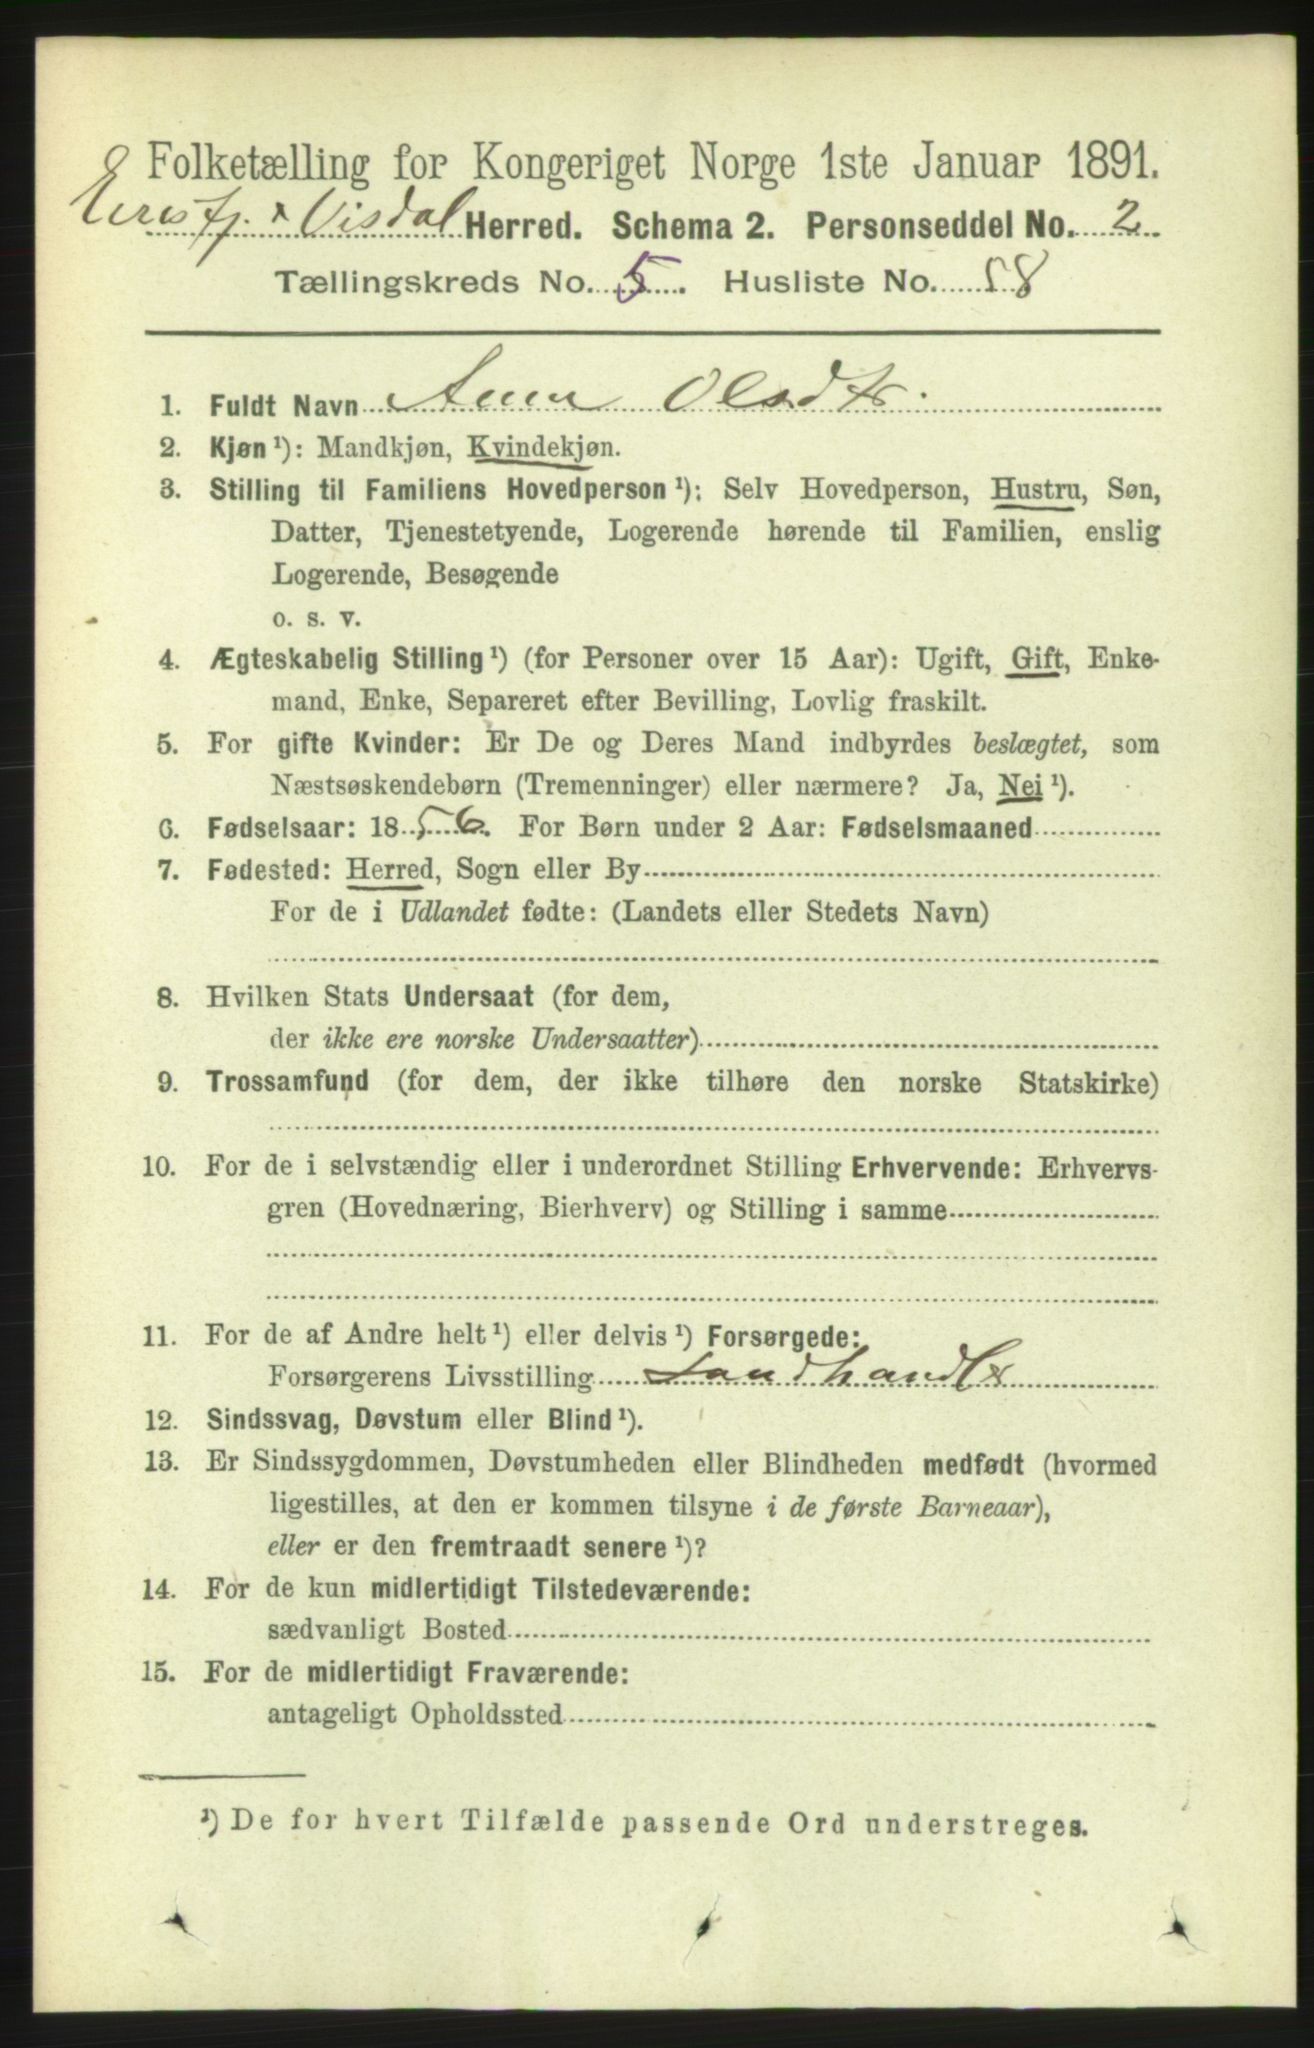 Folketælling for Kongeriget Norge 1ste Januar 1891.
Eresfj. & Visdal Herred. Schema 2. Personseddel No. 2
Tællingskreds No. 5. Husliste No. 58
1. Fuldt Navn Anna Olsdtr.
2. Kjøn ¹): Mandkjøn, Kvindekjøn.
3. Stilling til Familiens Hovedperson ¹): Selv Hovedperson, Hustru, Søn,
Datter, Tjenestetyende, Logerende hørende til Familien, enslig
Logerende, Besøgende
o. s. v.
4. Ægteskabelig Stilling ¹) (for Personer over 15 Aar): Ugift, Gift, Enke-
mand, Enke, Separeret efter Bevilling, Lovlig fraskilt.
5. For gifte Kvinder: Er De og Deres Mand indbyrdes beslægtet, som
Næstsøskendebørn (Tremenninger) eller nærmere? Ja, Nei ¹).
6. Fødselsaar: 1856. For Børn under 2 Aar: Fødselsmaaned
7. Fødested: Herred, Sogn eller By
For de i Udlandet fødte: (Landets eller Stedets Navn)
8. Hvilken Stats Undersaat (for dem,
der ikke ere norske Undersaatter)
9. Trossamfund (for dem, der ikke tilhøre den norske Statskirke)
10. For de i selvstændig eller i underordnet Stilling Erhvervende: Erhvervs-
gren (Hovednæring, Bierhverv) og Stilling i samme
11. For de af Andre helt ¹) eller delvis ¹) Forsørgede:
Forsørgerens Livsstilling Landhandler
12. Sindssvag, Døvstum eller Blind ¹).
13. Er Sindssygdommen, Døvstumheden eller Blindheden medfødt (hvormed
ligestilles, at den er kommen tilsyne i de første Barneaar),
eller er den fremtraadt senere ¹)?
14. For de kun midlertidigt Tilstedeværende:
sædvanligt Bosted
15. For de midlertidigt Fraværende:
antageligt Opholdssted
¹) De for hvert Tilfælde passende Ord understreges.